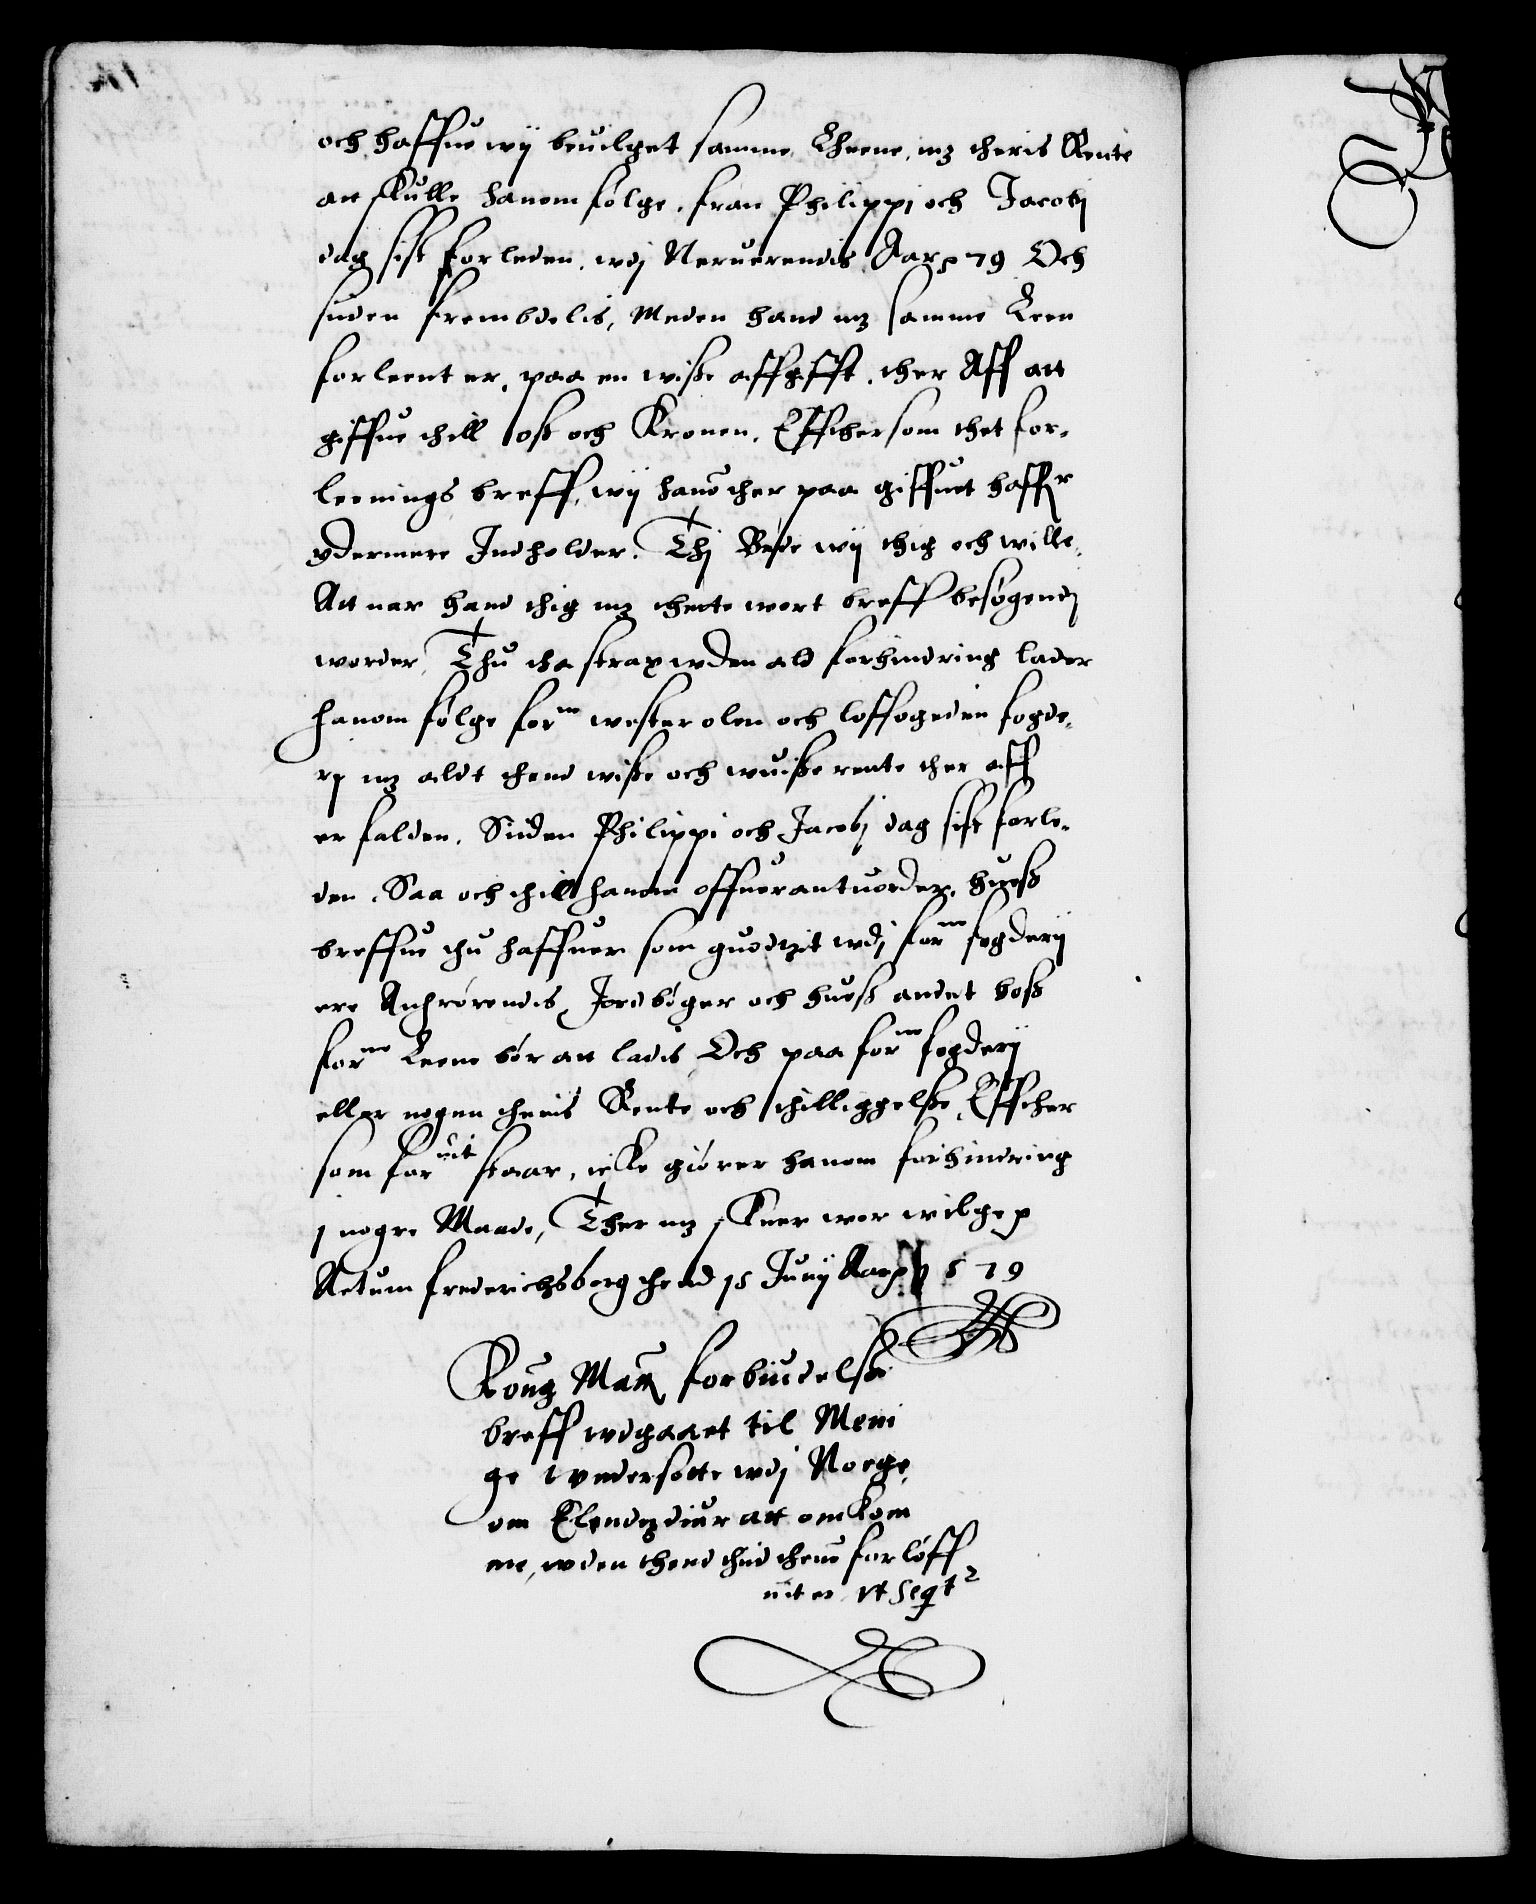 och haffue wij beuilget samme Lheene, mz theris Rente
att skulle hanom følge, fran Philippi och Jacobj
dag sist forleden, wdj Neruerendis Aar 79 Och
siiden frembdelis, Meden hand mz samme Leen
forleent er, paa en wisse affgifft, ther Aff att
giffue thill oss och Kronen, Effthersom thet for-
leenings breff, wij hand ther paa giffuet haffr
ydermere Indholder. Thj Bede wij thig och wille,
Att nar hand thig mz thette wort breff besøgendj
worder, Thu tha strax wden ald forhindring lader
hanom følge forne westerolen och loffogeden fogde-
rj mz aldt thend wisse och wuisse rente ther aff
er falden, Siiden Philippi och Jacobj dag sist forle-
den, Saa och thill hanom offuerantuorder, huess
breffue thu haffuer som guodtzit wdj forne fogderij
ere Anhrørendis, Jordbøger och huess andet hoss
forne Leene bør att ladis, Och paa forne fogderij
eller nogen thenis Rente och thilliggelsse, Effther
som foruit staar, icke giører hanom forhindring
j nogre Maade, Ther mz skeer wor wilge
Actum frederichsborg thend 18 Junij Aar 1579
Kong Matt forbiudelsse
breff wdgaaet til Meni
ge wndersotte wdj Norge,
om Elendzdiur att omkom
me, wden thend thid thend forløff
uit er vt Seqt